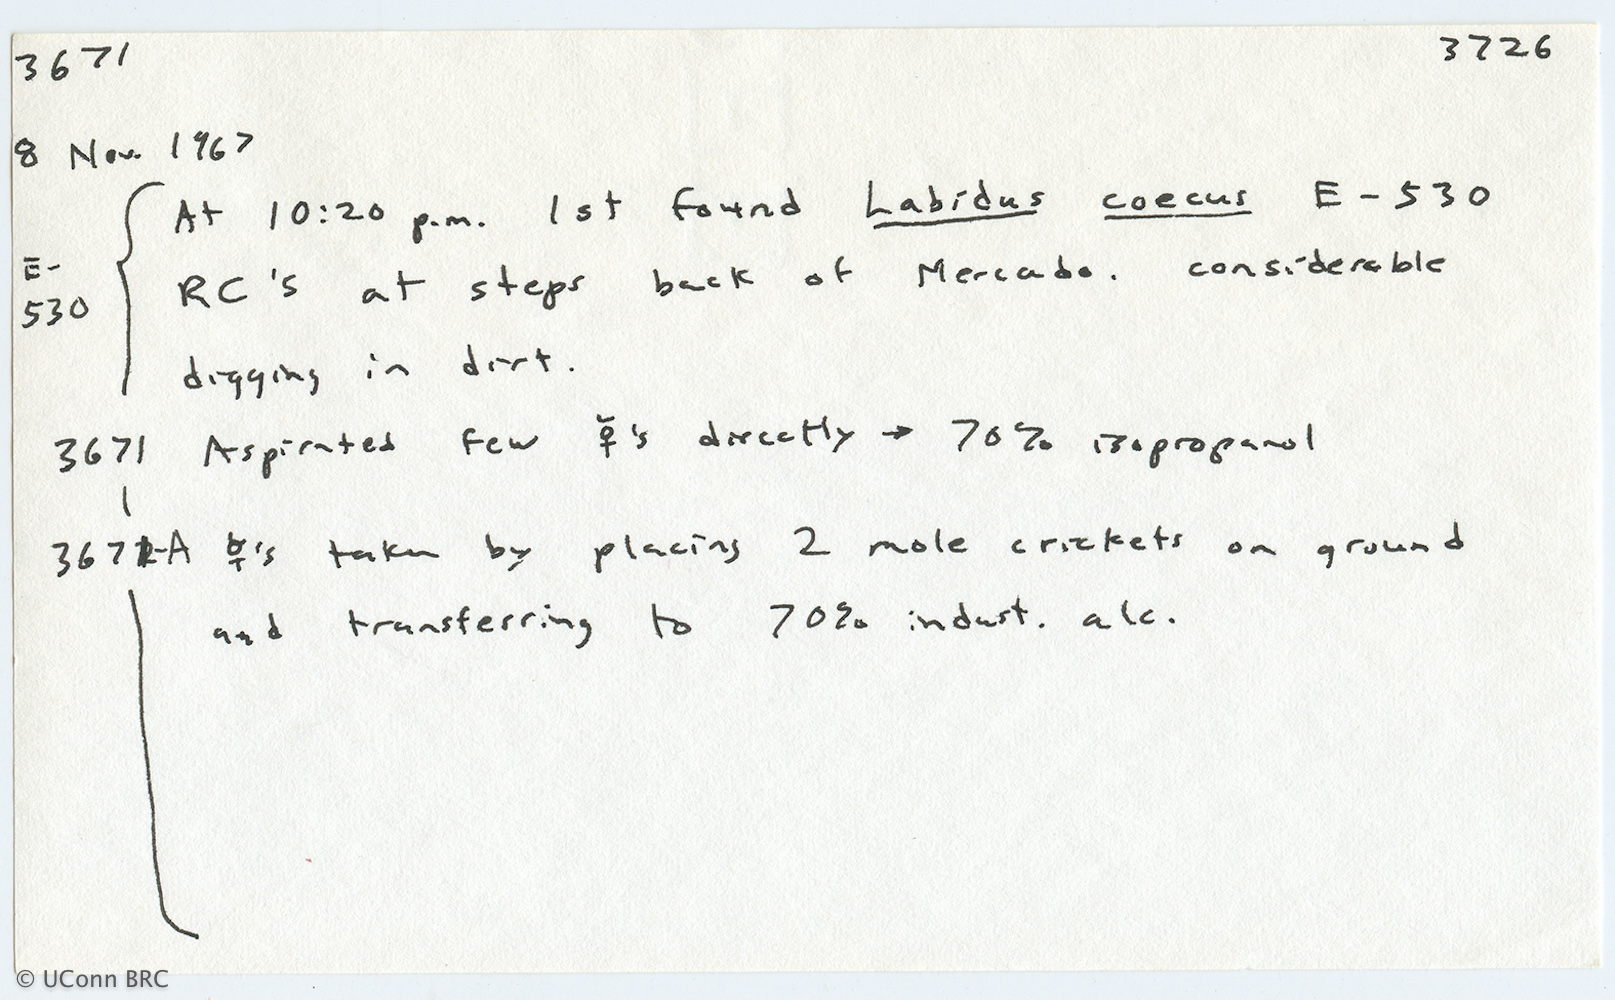 3671 3726
8 Nov. 1967
At 10:20 p.m. 1st found Labidus coecus E-530
E-530
RC's at steps back of Mercado. considerable
digging in dirt.
3671 Aspirated few ☿'s directly → 70% isopropanol
3671-A ☿'s taken by placing 2 mole crickets on ground
and transferring to 70% indust. alc.
© UConn BRC